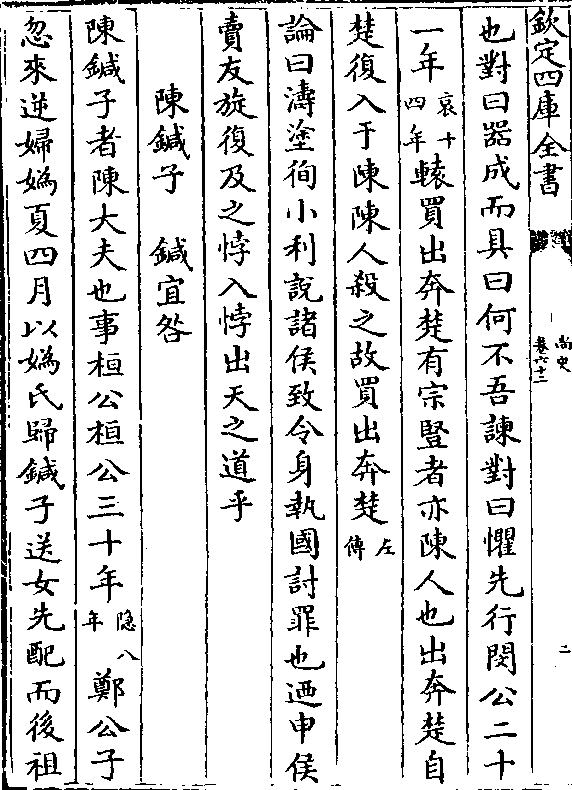 欽定四庫全書
尚史
卷六十二
二
也對曰器成而具曰何不吾諫對曰懼先行閔公二十
一年哀十四年轅買出奔楚有宗豎者亦陳人也出奔楚自
楚復入于陳陳人殺之故買出奔楚左傳
論曰濤塗徇小利說諸侯致令身執國討罪也迺申侯
賣友旋復及之悖入悖出天之道乎
陳鍼子 鍼宜咎
陳鍼子者陳大夫也事桓公桓公三十年隐八年鄭公子
忽來逆婦媯夏四月以媯氏歸鍼子送女先配而後祖